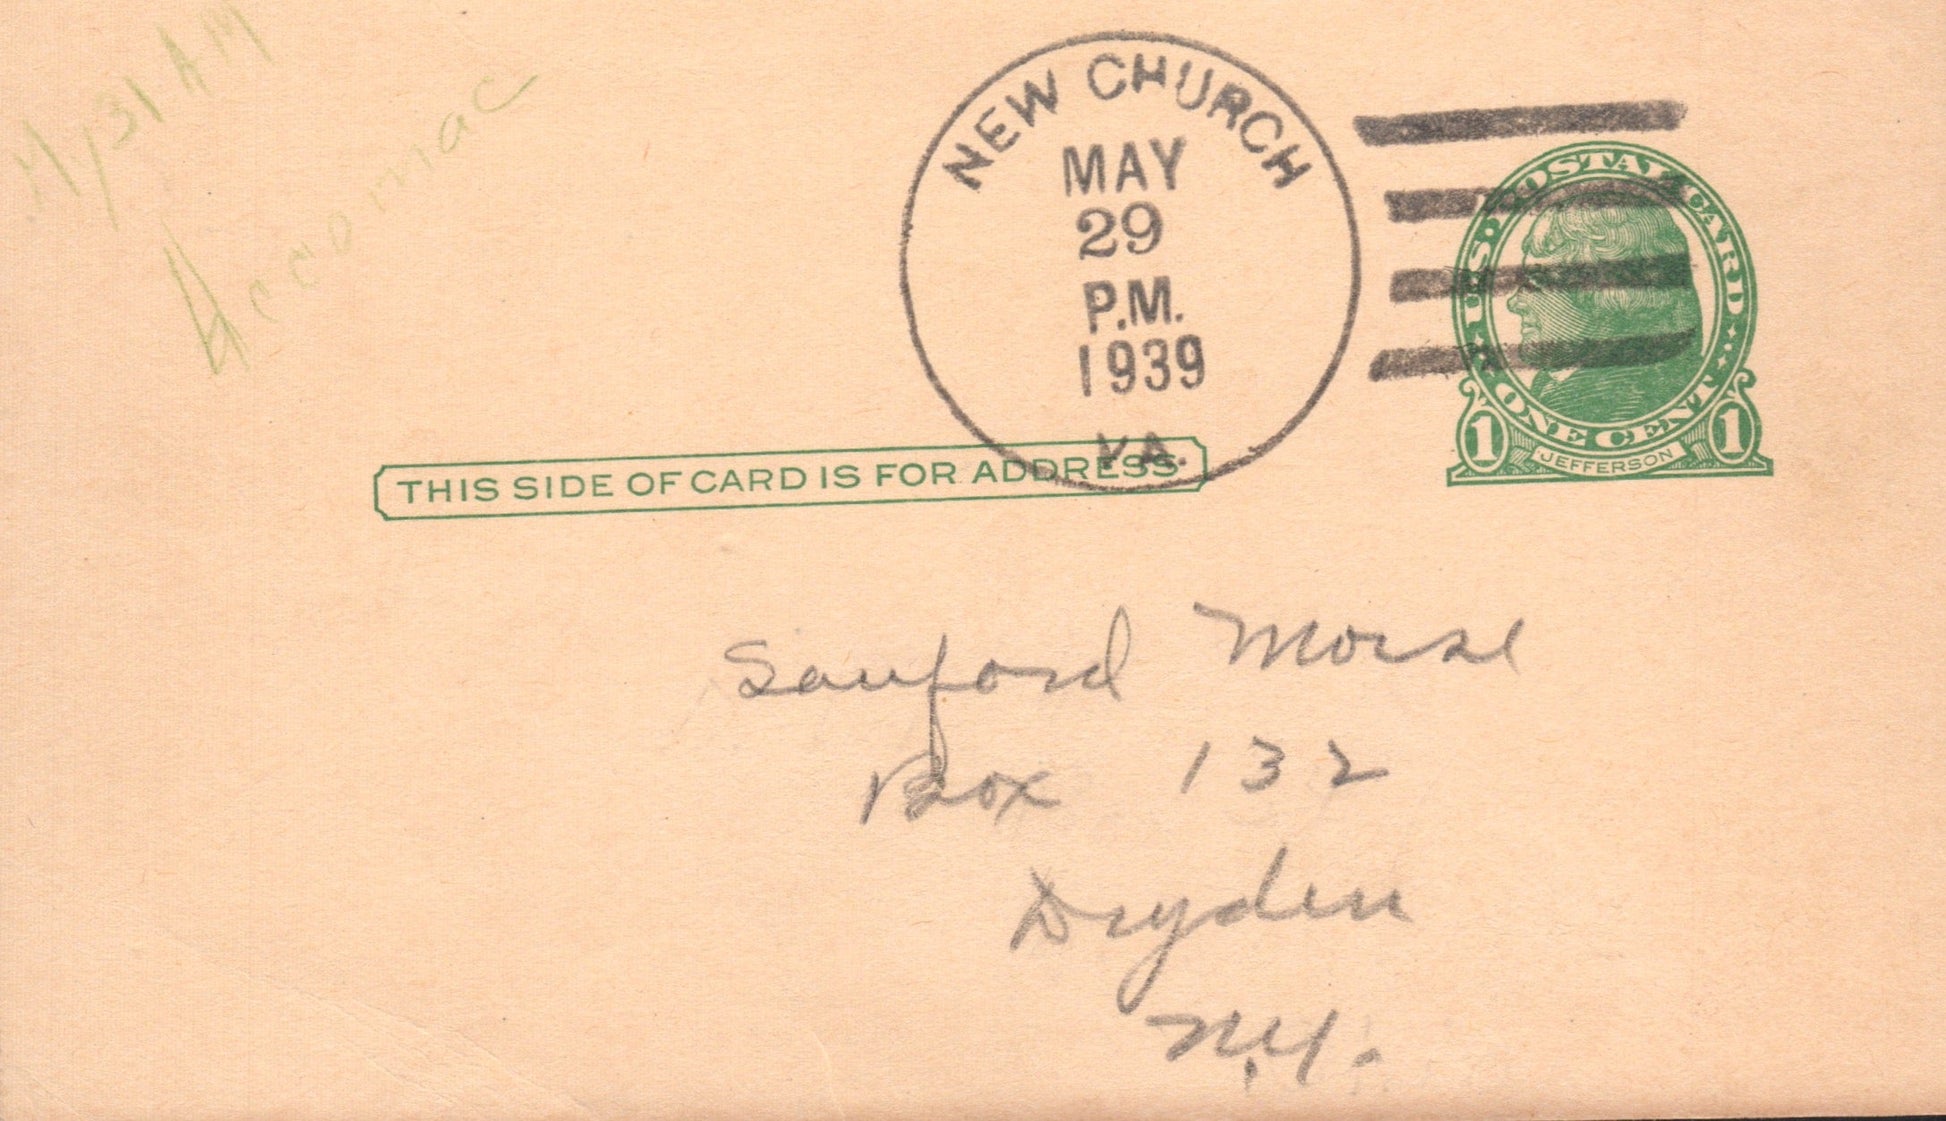 Accomac
NEW CHURCH
MAY
29
P.M.
1939
VA.
U.S. POSTAL CARD
ONE CENT
1 1
JEFFERSON
THIS SIDE OF CARD IS FOR ADDRESS
Sanford Morse
Box 132
Dryden
N.Y.